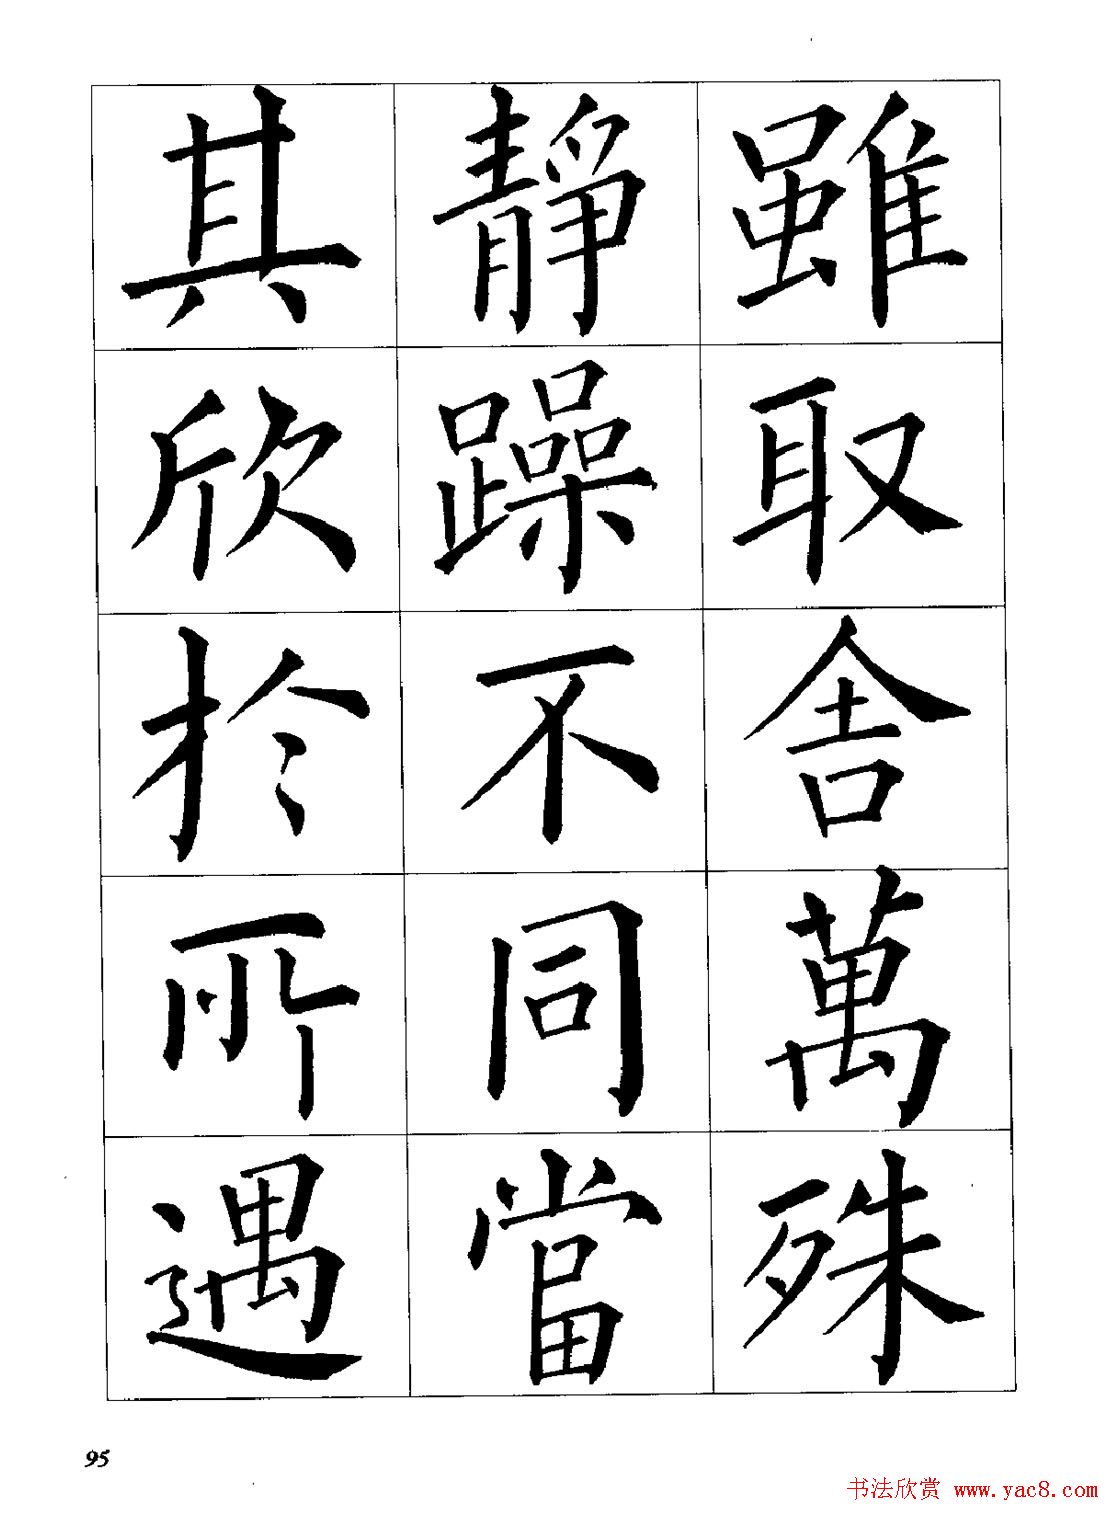 雖取舍萬殊
靜躁不同當
其欣於所遇
95
书法欣赏 www.yac8.com